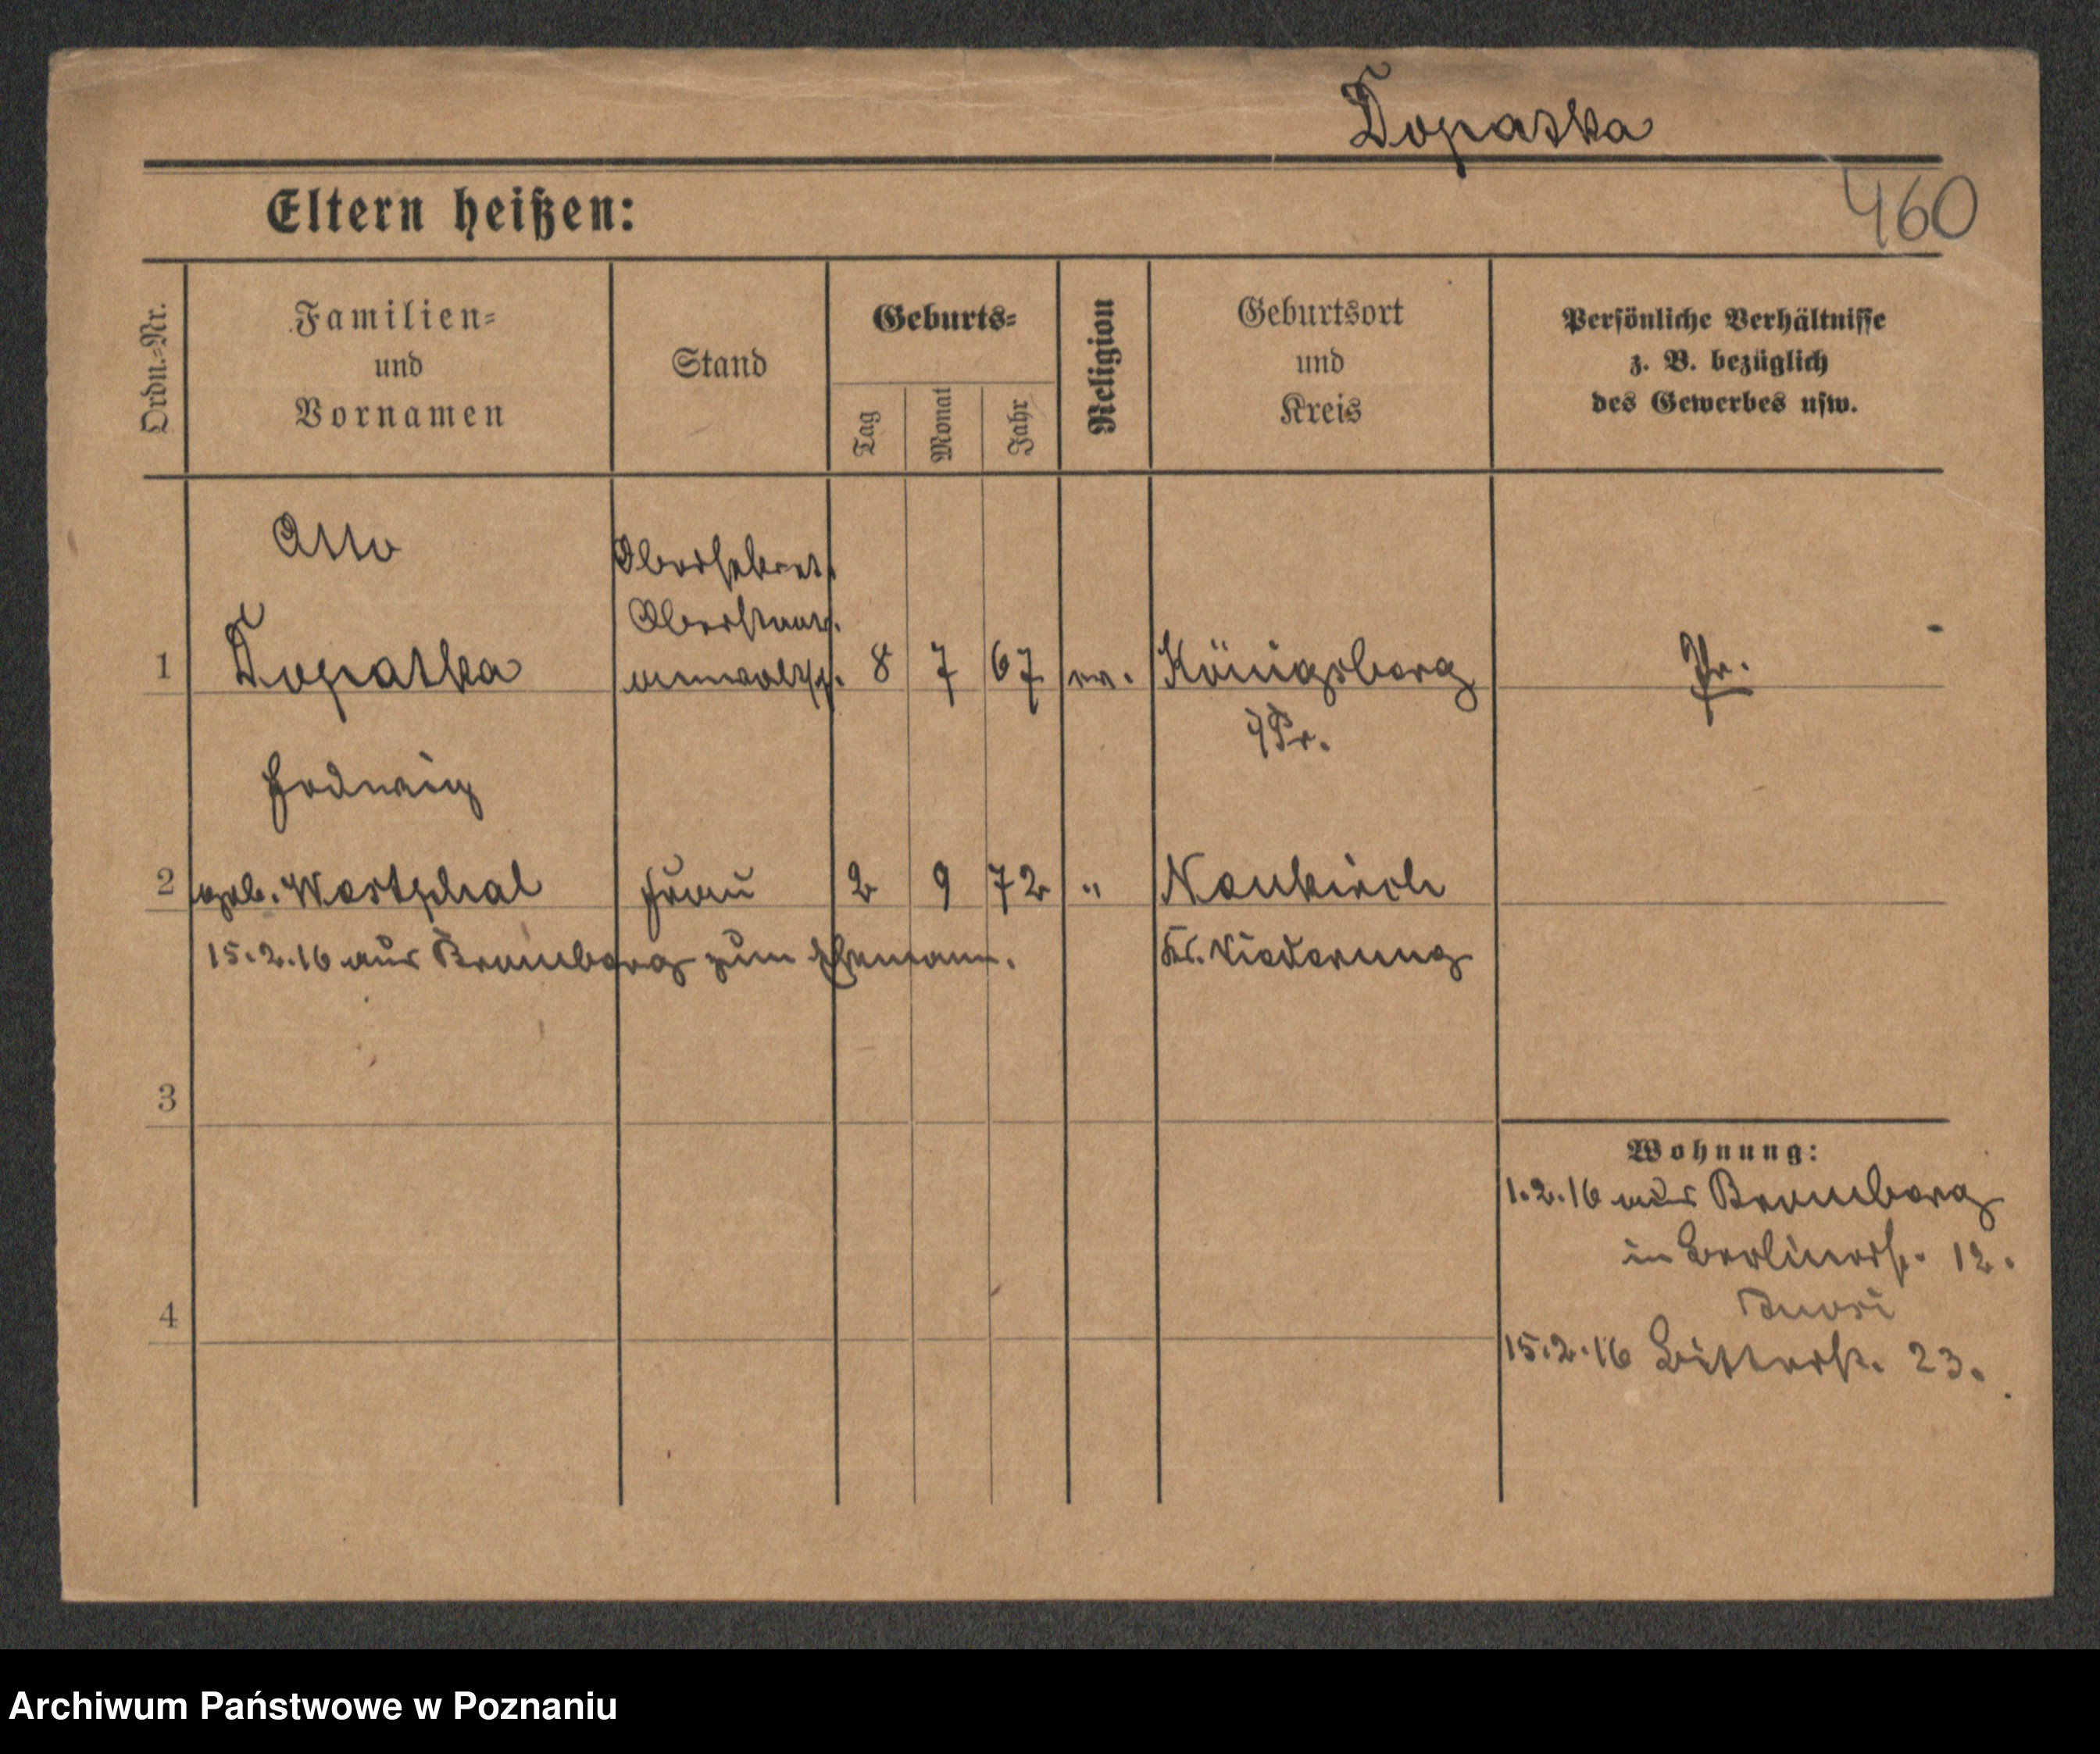 Topaska
460
Eltern heißen:
Ordn.-Nr.
Familien-
und
Vornamen
Stand
Geburts-
Tag
Monat
Jahr
Religion
Geburtsort
und
Kreis
Persönliche Verhältnisse
z. B. bezüglich
des Gewerbes usw.
Otto
Obersekret.
Oberstaats.
1 Topaska anwaltsch. 8 7 67 ev. Königsberg Pr.
i/Pr.
Hedwig
2 geb. Westphal Frau 2 9 72 " Neukirch
15.2.16 aus Bromberg zum Ehemann. Kr. Niederung
3
Wohnung:
1.2.16 aus Bromberg
in Berlinerstr. 12.
4
15.2.16 Ritterstr. 23.
Archiwum Państwowe w Poznaniu